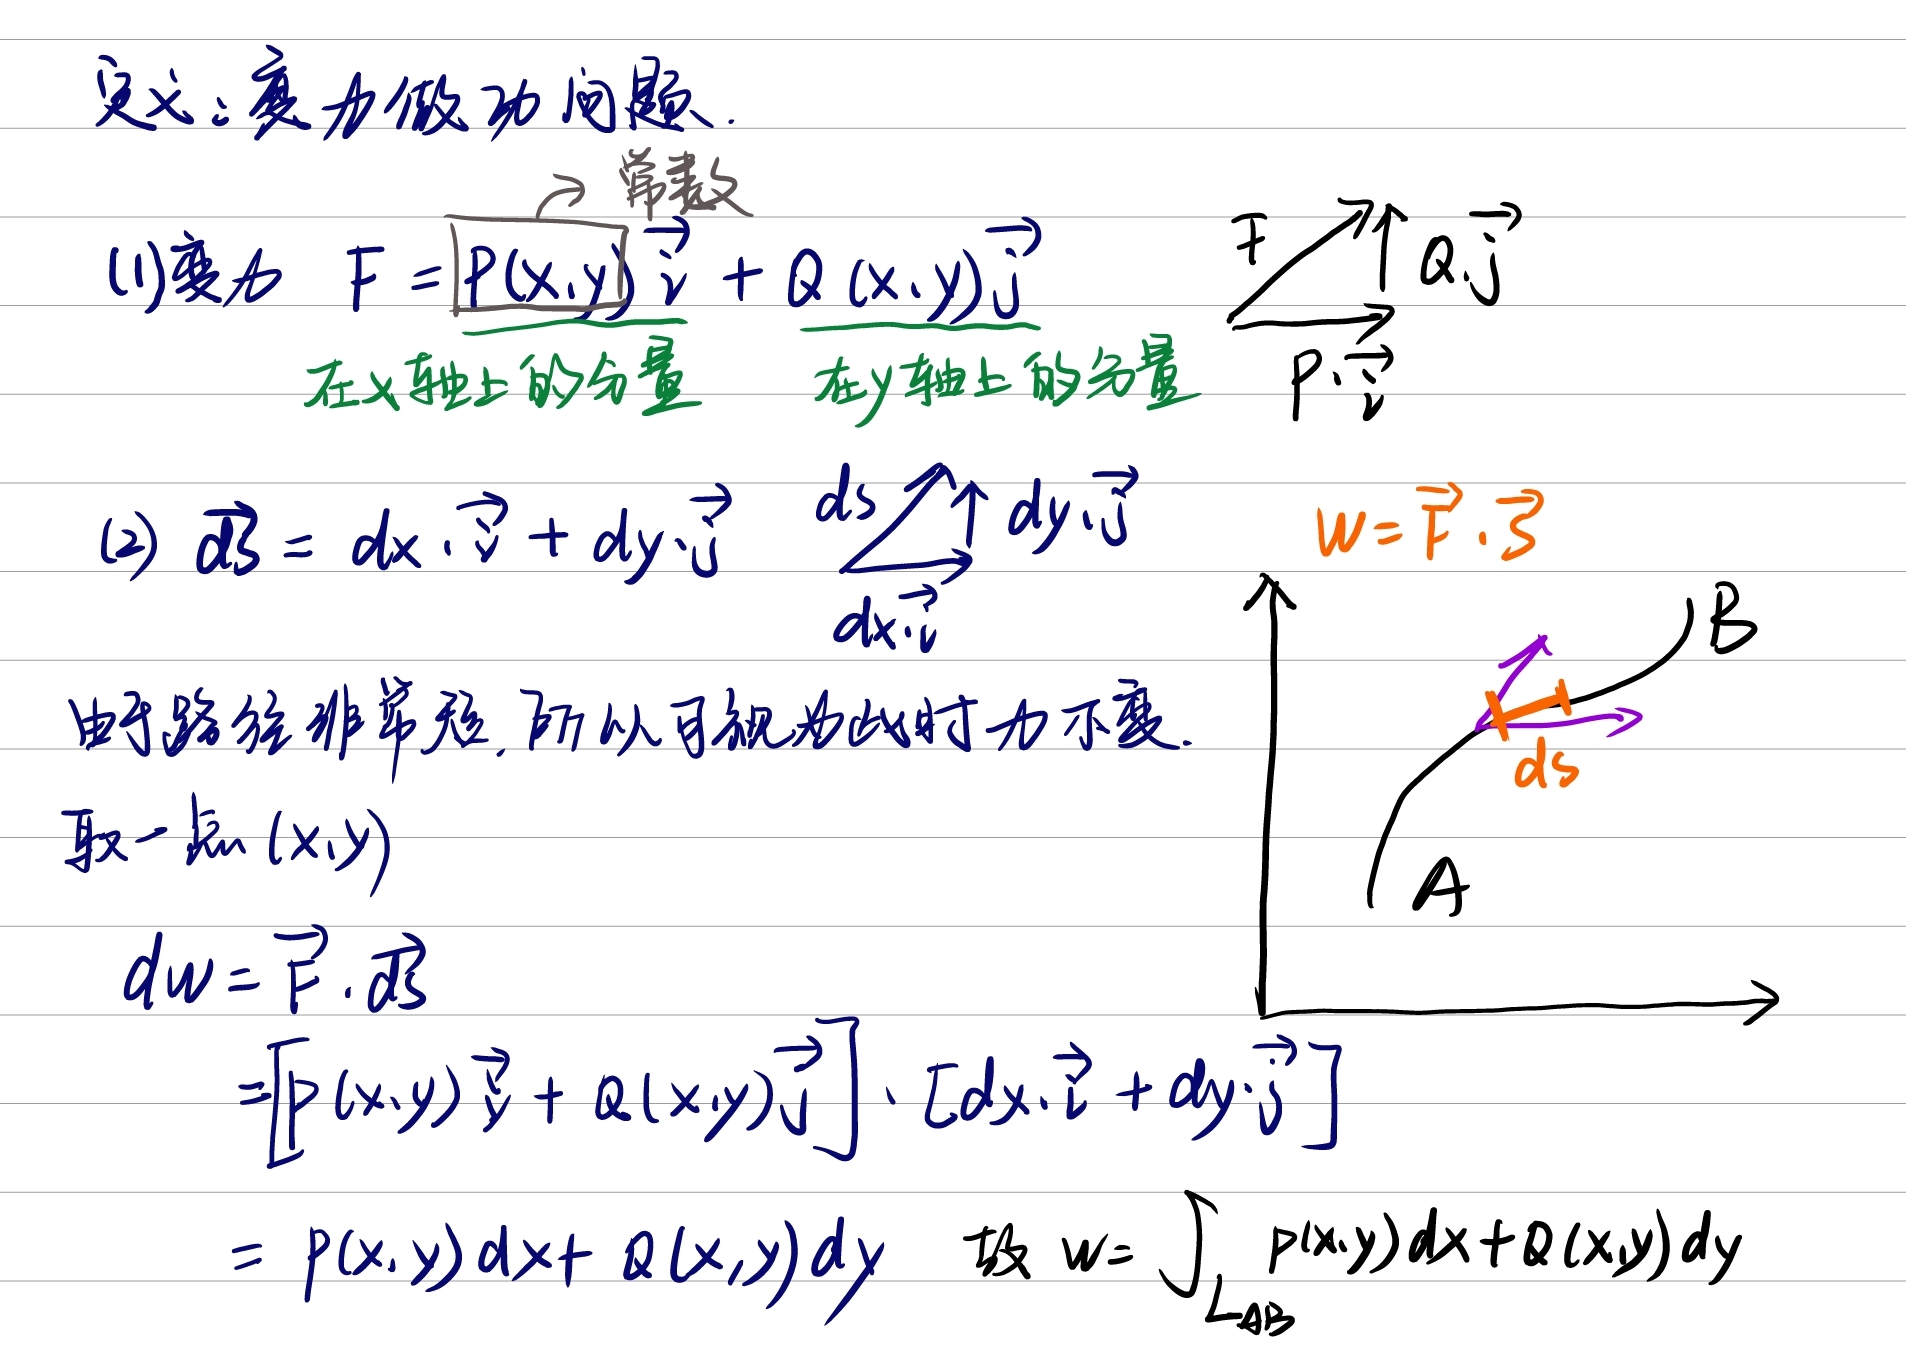 定义：变力做功问题.
常数
(1)变力 F = P(x,y)i⃗ + Q(x,y)j⃗
F Q·j⃗
P·i⃗
在x轴上的分量 在y轴上的分量
(2) d⃗s = dx·i⃗ + dy·j⃗
ds dy·j⃗
dx·i⃗
W = F⃗·S⃗
B
ds
A
由于路径非常短，所以可视为此时力不变.
取一点(x,y)
dw = F⃗·d⃗s
=[P(x,y)i⃗ + Q(x,y)j⃗]·[dx·i⃗ + dy·j⃗]
= P(x,y)dx + Q(x,y)dy 故 W = ∫_{L_{AB}} P(x,y)dx + Q(x,y)dy